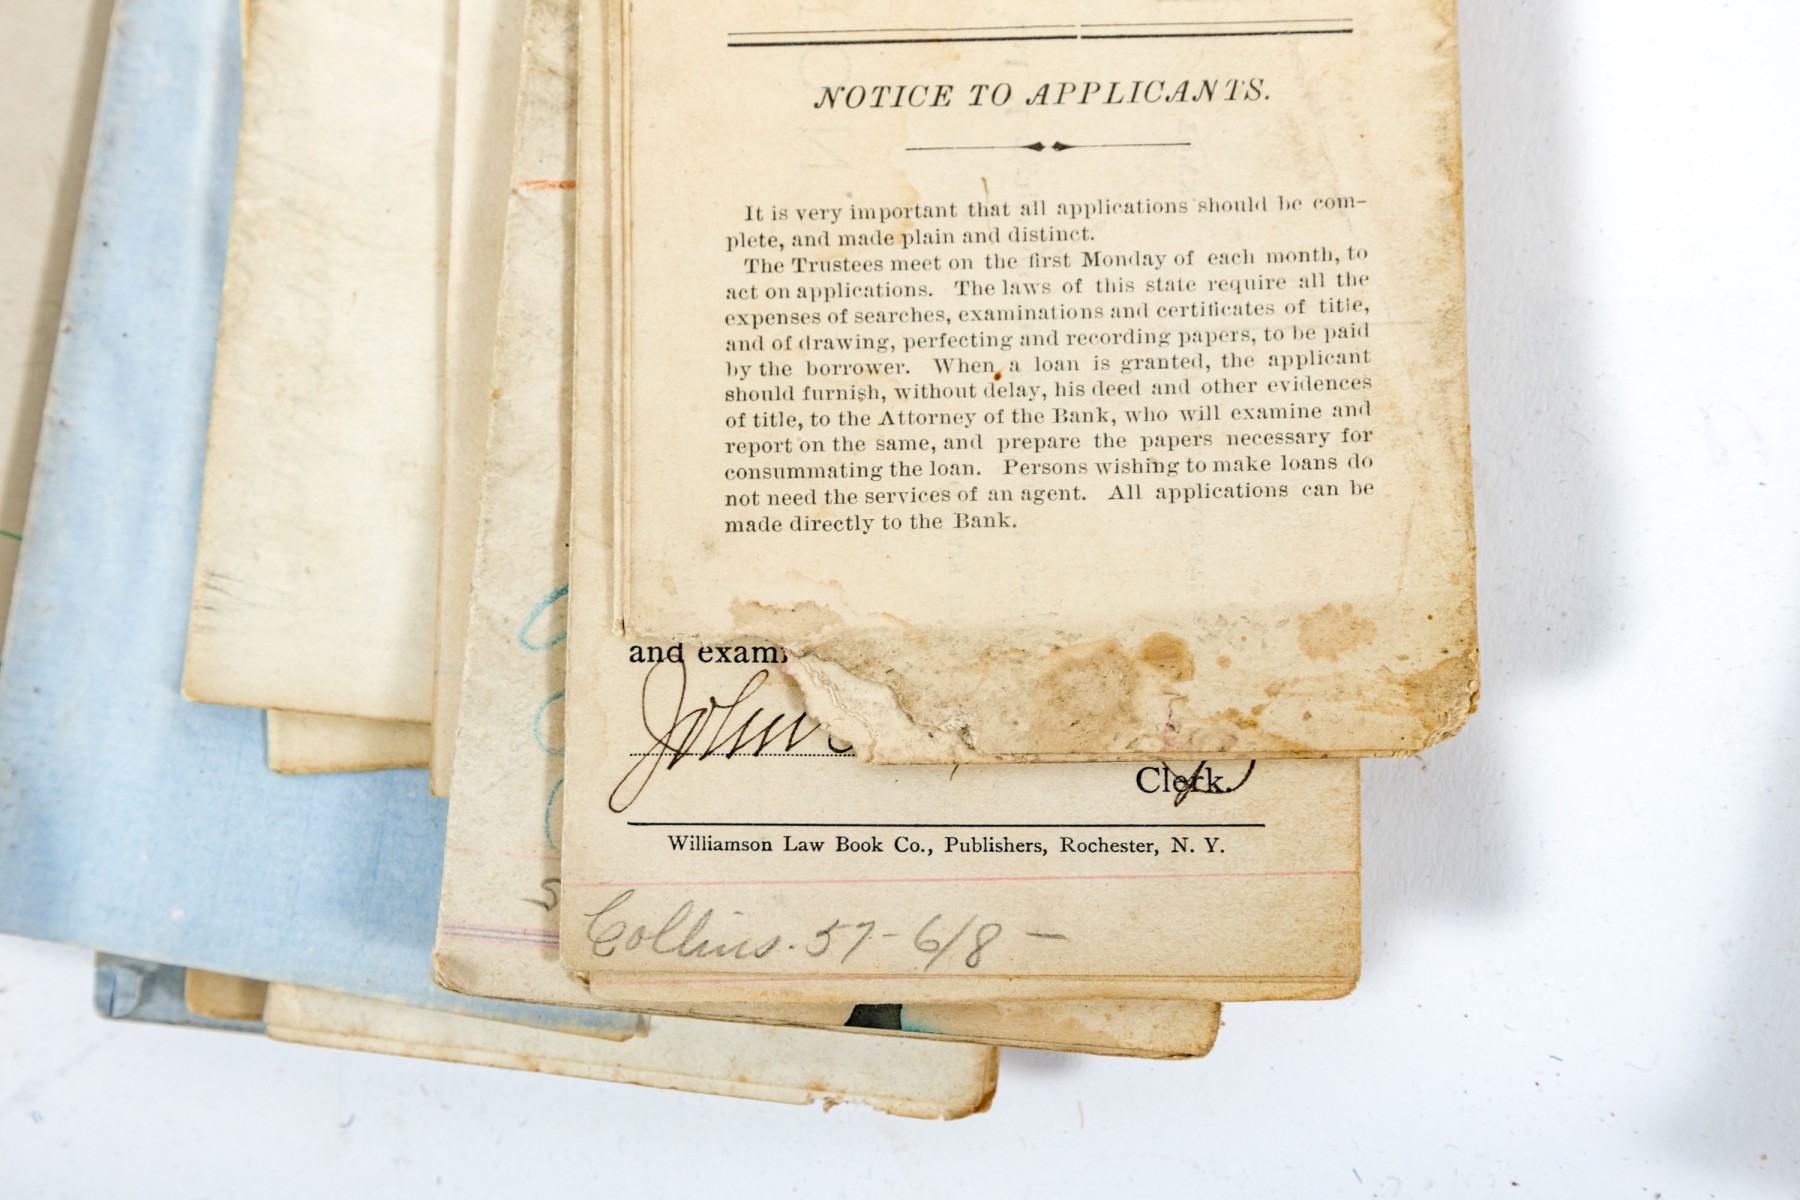 NOTICE TO APPLICANTS.
It is very important that all applications should be com-
plete, and made plain and distinct.
The Trustees meet on the first Monday of each month, to
act on applications. The laws of this state require all the
expenses of searches, examinations and certificates of title,
and of drawing, perfecting and recording papers, to be paid
by the borrower. When a loan is granted, the applicant
should furnish, without delay, his deed and other evidences
of title, to the Attorney of the Bank, who will examine and
report on the same, and prepare the papers necessary for
consummating the loan. Persons wishing to make loans do
not need the services of an agent. All applications can be
made directly to the Bank.
and exam
John
Clerk.
Williamson Law Book Co., Publishers, Rochester, N. Y.
Collins. 57-6/8 —